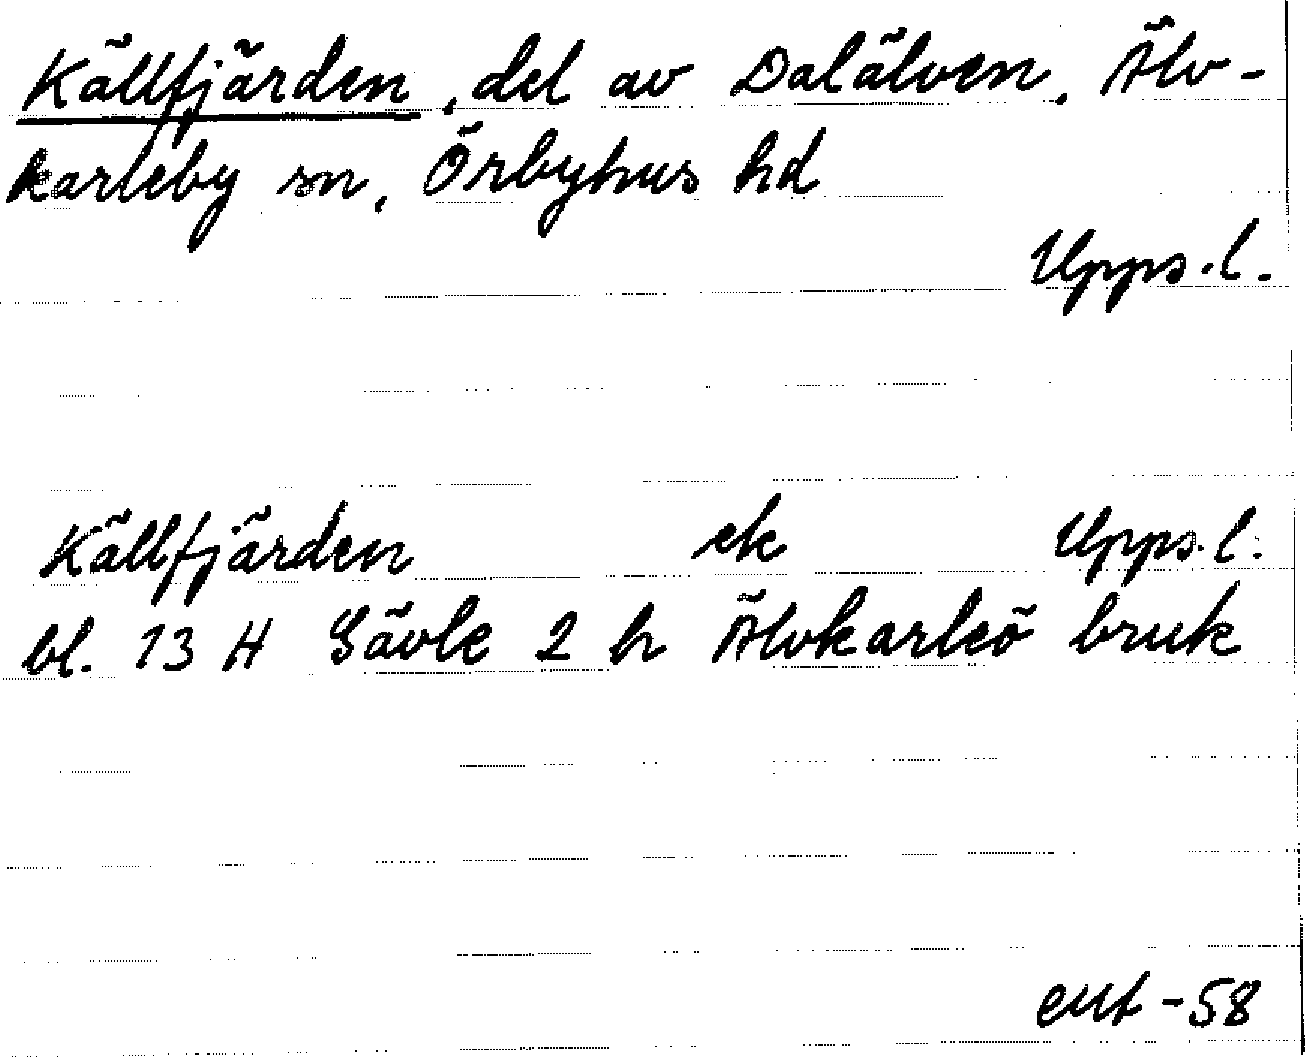 Källfjärden, del av Dalälven, Älv-
karleby sn, Örbyhus hd
Upps.l.
Källfjärden ek Upps.l.
bl. 13 H Gävle 2 h Älvkarleö bruk
-58